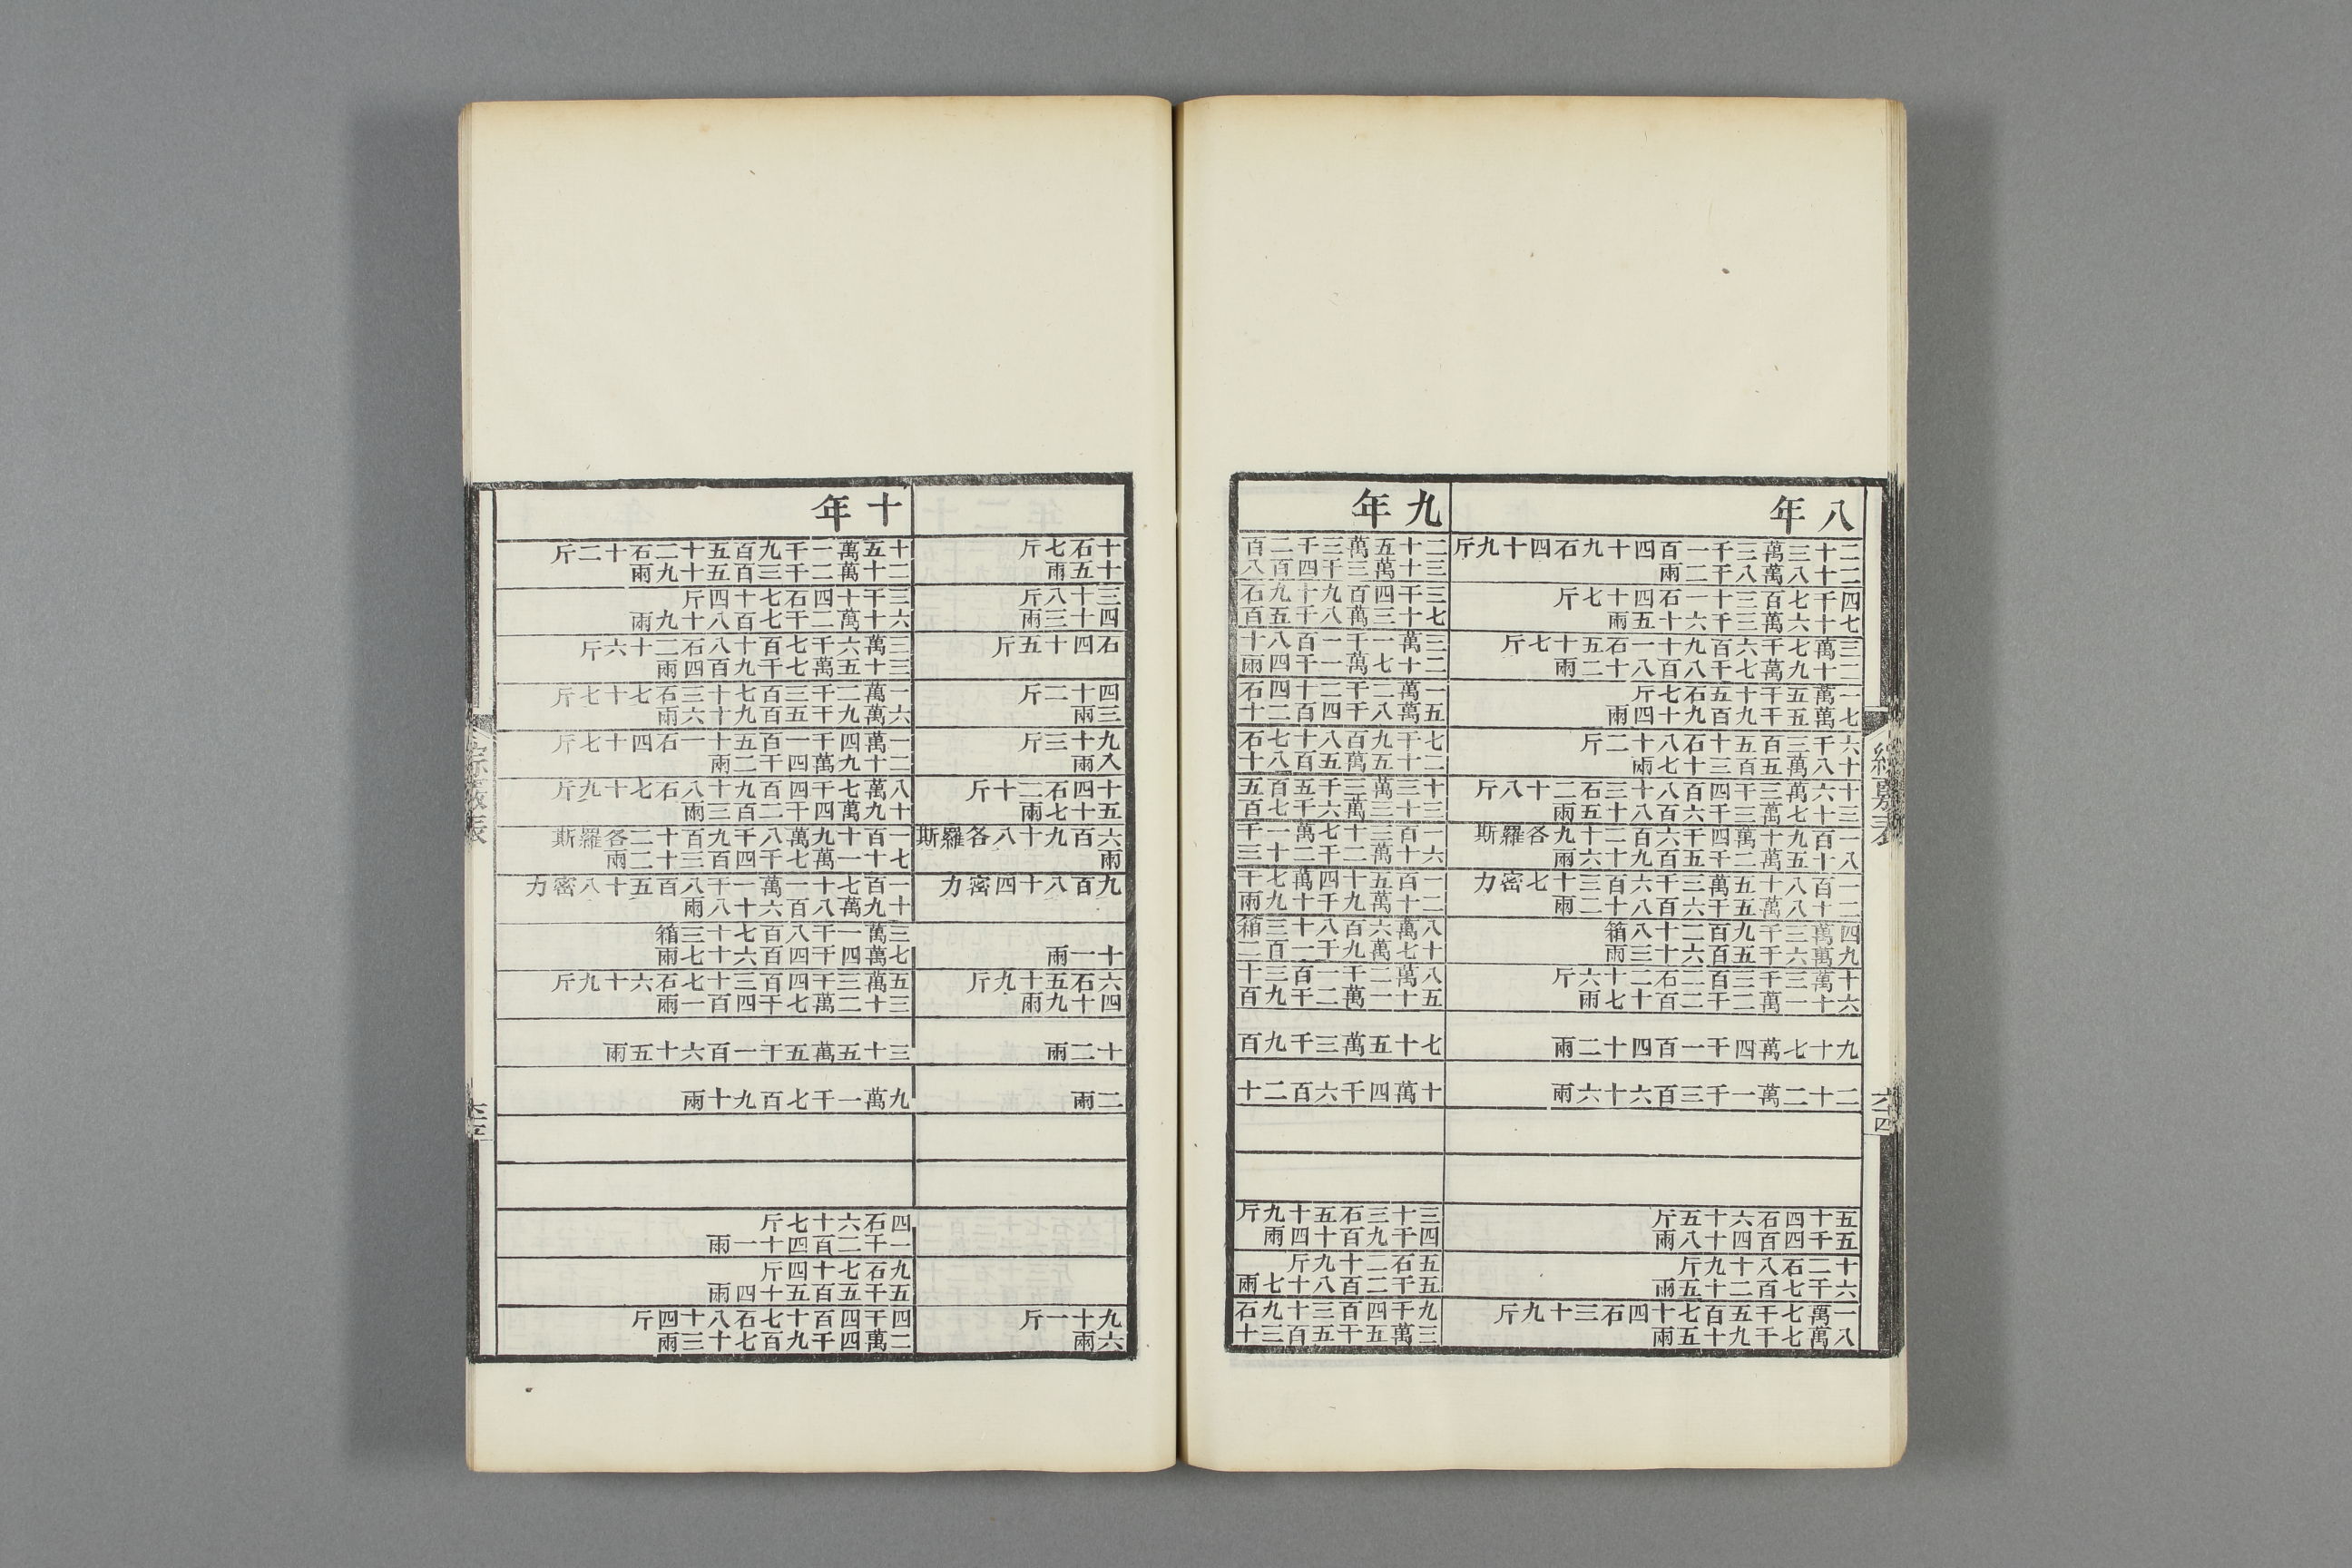 八年
二十三萬三千一百四十九石四十九斤
二十八萬八千二兩
四千七百三十一石四十七斤
七十六萬三千六十五兩
三萬七千六百九十一石五十七斤
二十九萬七千八百八十二兩
一萬五千五十五石七斤
七萬五千九百九十四兩
六千三百五十石八十二斤
十八萬五百三十七兩
十六萬三千四百八十三石二十八斤
三十七萬三千四百八十五兩
一百九十萬四千六百二十九各羅斯
八十五萬二千五百九十六兩
一百八十五萬三千六百三十七密力
二十八萬五千六百八十二兩
四萬三千九百二十八箱
九萬六千五百六十三兩
十萬三千三百二石二十六斤
六十一萬二千二百二十七兩
九十七萬四千一百四十二兩
二十二萬一千三百六十六兩
五十四石六十五斤
五千四百四十八兩
十二石八十九斤
六千七百二十五兩
一萬七千五百七十四石三十九斤
八萬七千九十五兩
九年
二十五萬三千二百
三十萬三千四百八
三千四百九十九石
七十三萬八千五百
三萬一千一百八十
二十七萬一千四兩
一萬二千二十四石
五萬八千四百二十
七千九百八十七石
二十五萬五百八十
十三萬三千五百五
三十三萬六千七百
一百三十七萬一千
六十萬二千二十三
一百五十四萬七千
二十萬九千十九兩
八萬六百八十三箱
十七萬九千一百二
八萬二千一百三十
五十一萬二千九百
七十五萬三千九百
十萬四千六百二十
三十三石五十九斤
四千九百十四兩
五石二十九斤
五千二百八十七兩
九千四百三十九石
三萬五千五百三十
六十四
十石七斤
十五兩
三十八斤
四十三兩
石四十五斤
四十二斤
三兩
九十三斤
八兩
十四石二十斤
五十七兩
六百九十八各羅斯
兩
九百八十四密力
十一兩
六石五十九斤
四十九兩
十二兩
二兩
九十一斤
六兩
十年
十五萬一千九百五十二石十二斤
二十萬二千三百五十九兩
三千十四石七十四斤
六十萬二千七百八十九兩
三萬六千七百十八石二十六斤
三十五萬七千九百四兩
一萬二千三百七十三石七十七斤
六萬九千五百九十六兩
一萬四千一百五十一石四十七斤
二十九萬四千二兩
八萬七千四百九十八石七十九斤
十九萬四千二百三兩
一百十九萬八千九百十二各羅斯
七十一萬七千四百三十二兩
一百七十一萬一千八百五十八密力
十九萬八百六十八兩
三萬一千八百七十三箱
七萬四千四百六十七兩
五萬三千四百三十七石六十九斤
三十二萬七千四百一兩
三十五萬五千一百六十五兩
九萬一千七百九十兩
四石六十七斤
一千二百四十一兩
九石七十四斤
五千五百五十四兩
四千四百十七石八十四斤
二萬四千九百七十三兩